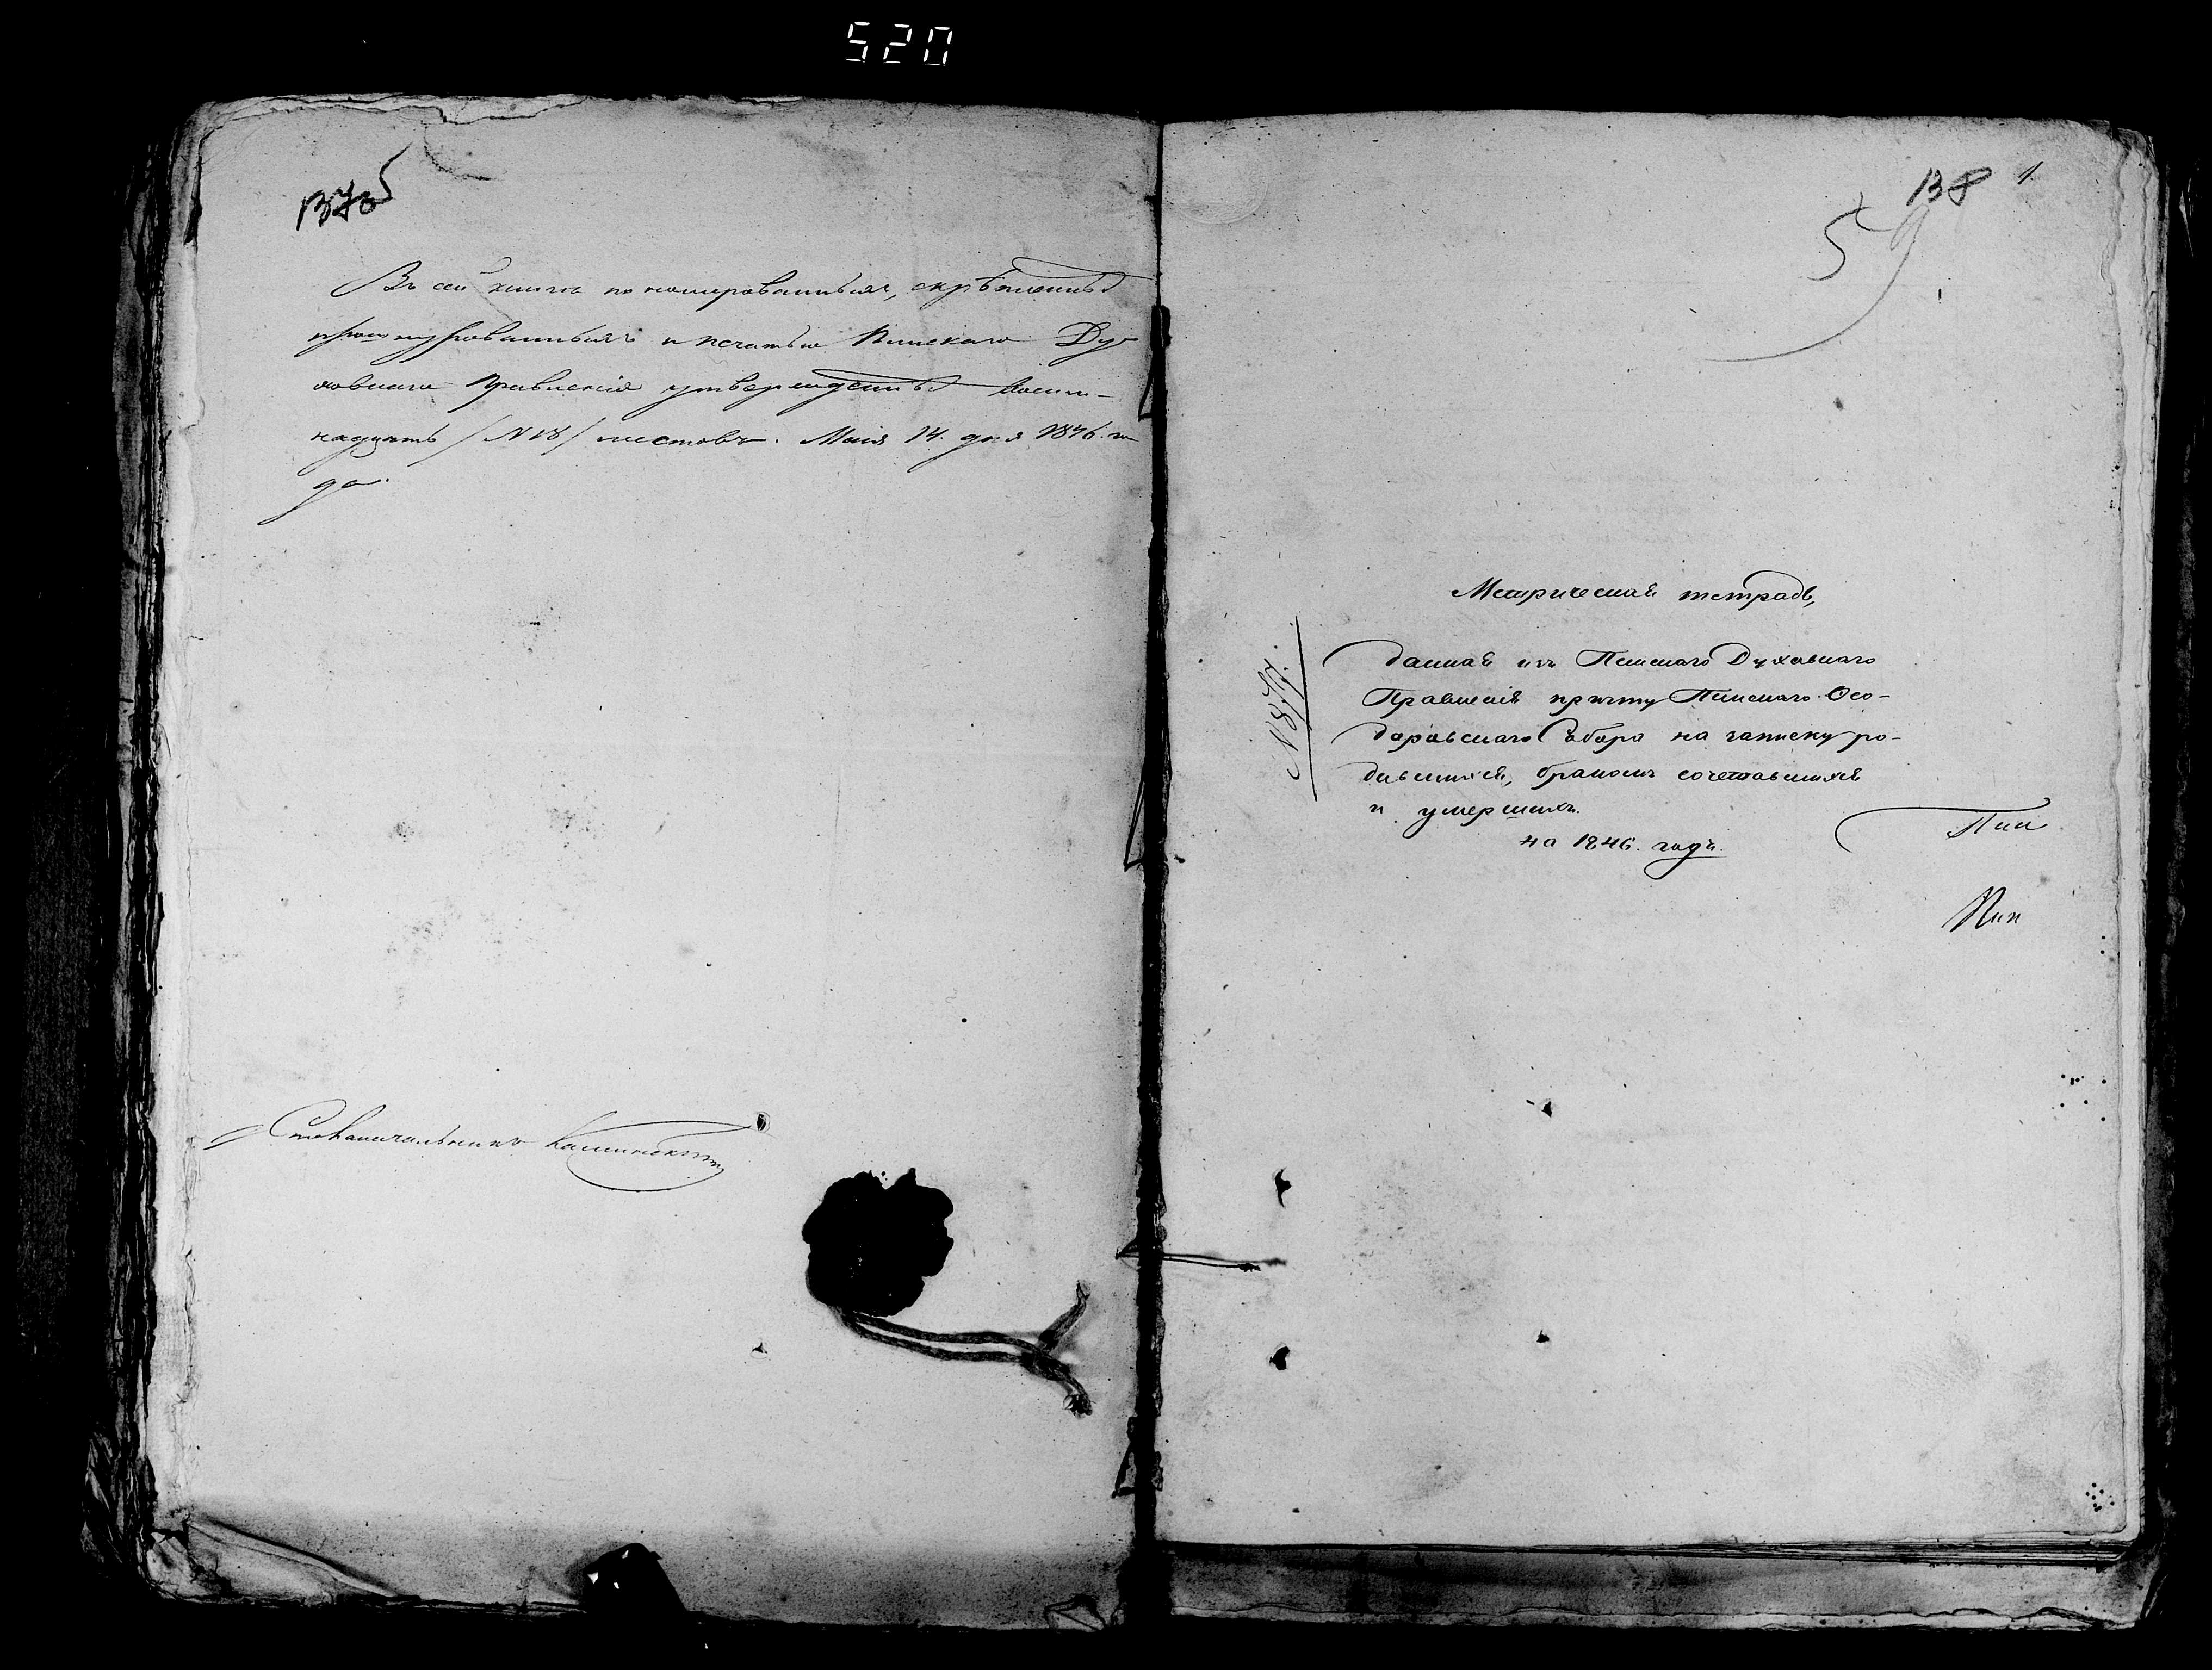 520
137об
Въ сей книгѣ по номерованныхъ, скрѣпленныхъ
прошнурованныхъ и печатью Пинскаго Ду-
ховнаго Правленія утвержденныхъ восем-
надцать /N 18/ листовъ. Маія 14. дня 1846. го
да.
Столоначальникъ
138 1.
59
Метрическая тетрадь,
данная изъ Пинскаго Духовнаго
Правленія причту Пинскаго Ѳео-
доровскаго Собора на записку ро-
дившихся, бракомъ сочетавшихся
и умершихъ.
на 1846. годъ.
N 877.
Пин
Пин